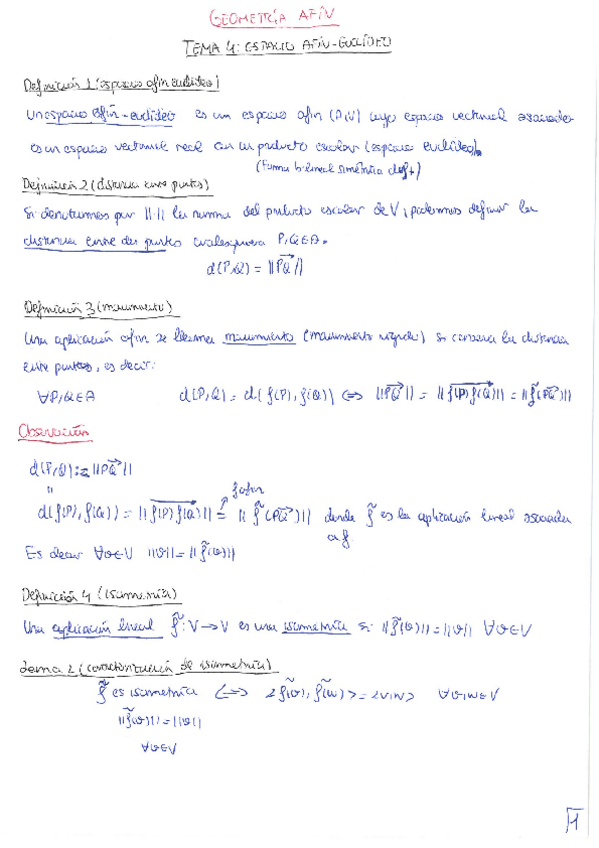 GEOMETRÍA AFÍN
TEMA 4: ESPACIO AFÍN-EUCLÍDEO
Definición 1 (espacio afín euclídeo)
Un espacio afín-euclídeo es un espacio afín (P,V) cuyo espacio vectorial asociado
es un espacio vectorial real con un producto escalar (espacio euclídeo).
(forma bilineal simétrica def+)
Definición 2 (distancia entre puntos)
Si denotamos por ||·|| la norma del producto escalar de V, podemos definir la
distancia entre dos puntos cualesquiera P,Q∈A.
d(P,Q) = ||PQ→||
Definición 3 (movimiento)
Una aplicación afín se llama movimiento (movimiento rígido) si conserva la distancia
entre puntos, es decir:
∀P,Q∈A d(P,Q) = d(f(P),f(Q)) ⟺ ||PQ→|| = ||f(P)f(Q)→|| = ||f̃(PQ→)||
Observación
d(P,Q) := ||PQ→||
"
f afín
d(f(P),f(Q)) = ||f(P)f(Q)→|| = ||f̃(PQ→)|| donde f̃ es la aplicación lineal asociada
a f
Es decir ∀v∈V ||v|| = ||f̃(v)||
Definición 4 (isometría)
Una aplicación lineal f̃: V→V es una isometría si ||f̃(v)|| = ||v|| ∀v∈V
Lema 2 (caracterización de isometría)
f̃ es isometría ⟺ <f̃(v), f̃(w)> = <v,w> ∀v,w∈V
||f̃(v)|| = ||v||
∀v∈V
1